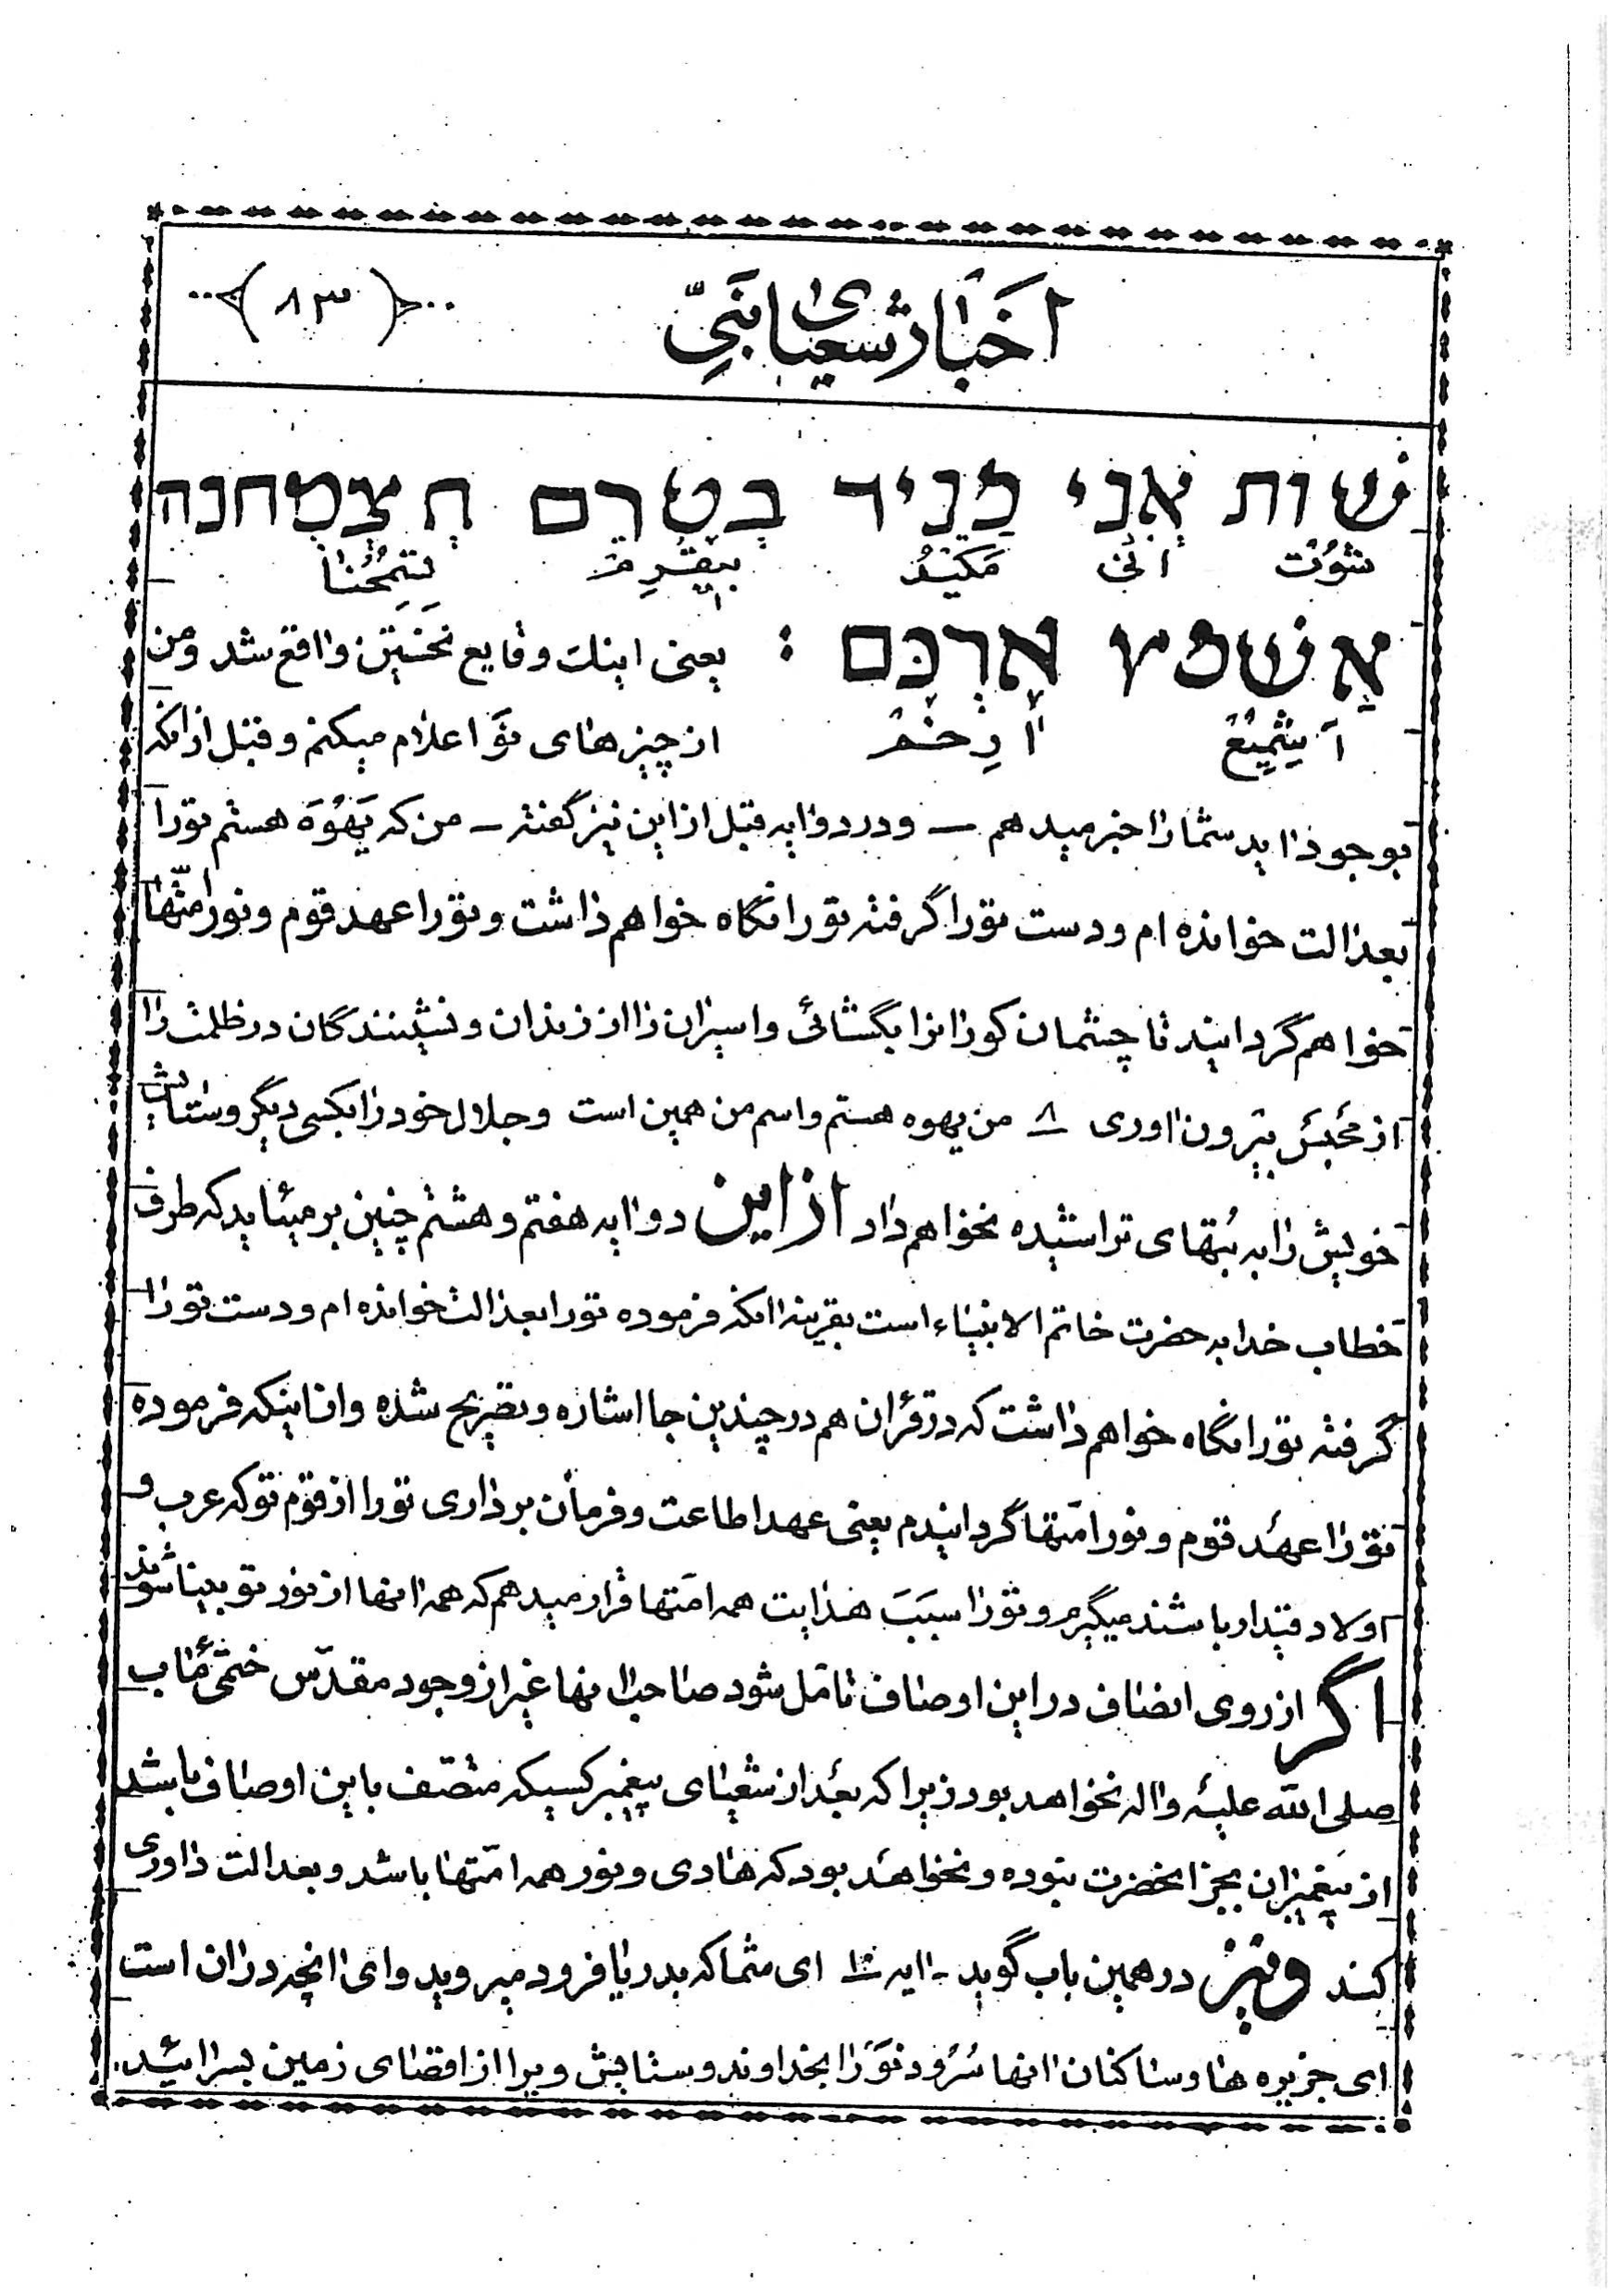 اخبار شعیای نبی ﴿۸۳﴾
שות אני מניד בטרם תצמחנה
شوُت انی مَکیدُ بیقرِم تتمحُنا
אשמע ארכם : یعنی اینک وقایع نخستین واقع شد و من
آیشمِیعُ ارِخم از چیزهای نو اعلام میکنم و قبل از آنکه
بوجود اید شما را خبر میدهم ــ و در دوایه قبل از این نیز گفته ــ من که یَهُوَه هستم تو را
بعدالت خوانده ام و دست تو را گرفته تو را نگاه خواهم داشت و تو را عهد قوم و نور امتها
خواهم گردانید تا چشمان کورانرا بگشائی و اسیران را از زندان و نشینندگان در ظلمت را
از محبس بیرون اوری ۸ من یهوه هستم و اسم من همین است و جلال خود را بکسی دیگر و ستایش
خویش را به بُتهای تراشیده نخواهم داد از این دو ایه هفتم و هشتم چنین بر میاید که طرف
خطاب خدا به حضرت خاتم الانبیاء است بقرینه انکه فرموده تو را بعدالت خوانده ام و دست تو را
گرفته تو را نگاه خواهم داشت که در قرآن هم در چندین جا اشاره و تصریح شده و اما اینکه فرموده
تو را عهد قوم و نور امتها گردانیدم یعنی عهد اطاعت و فرمان برداری تو را از قوم تو که عرب و
اولاد قیدار باشند میگیرم و تو را سبب هدایت همه امتها قرار میدهم که همه انها از نور تو بینا شوند
اگر از روی انصاف در این اوصاف تامل شود صاحب انها غیر از وجود مقدّس ختمی مآب
صلی الله علیه و اله نخواهد بود زیرا که بعد از شعیای پیغمبر کسیکه متصف باین اوصاف باشد
از پیغمبران بجز انحضرت نبوده و نخواهد بود که هادی و نور همه امتها باشد و بعدالت داوری
کند و نیز در همین باب گوید - ایه ۱۰ ای شما که بدریا فرود میروید و ای انچه در ان است
ای جزیره ها و ساکنان انها سُرُود نَو را بخداوند و ستایش ویرا از اقصای زمین بسرائید.